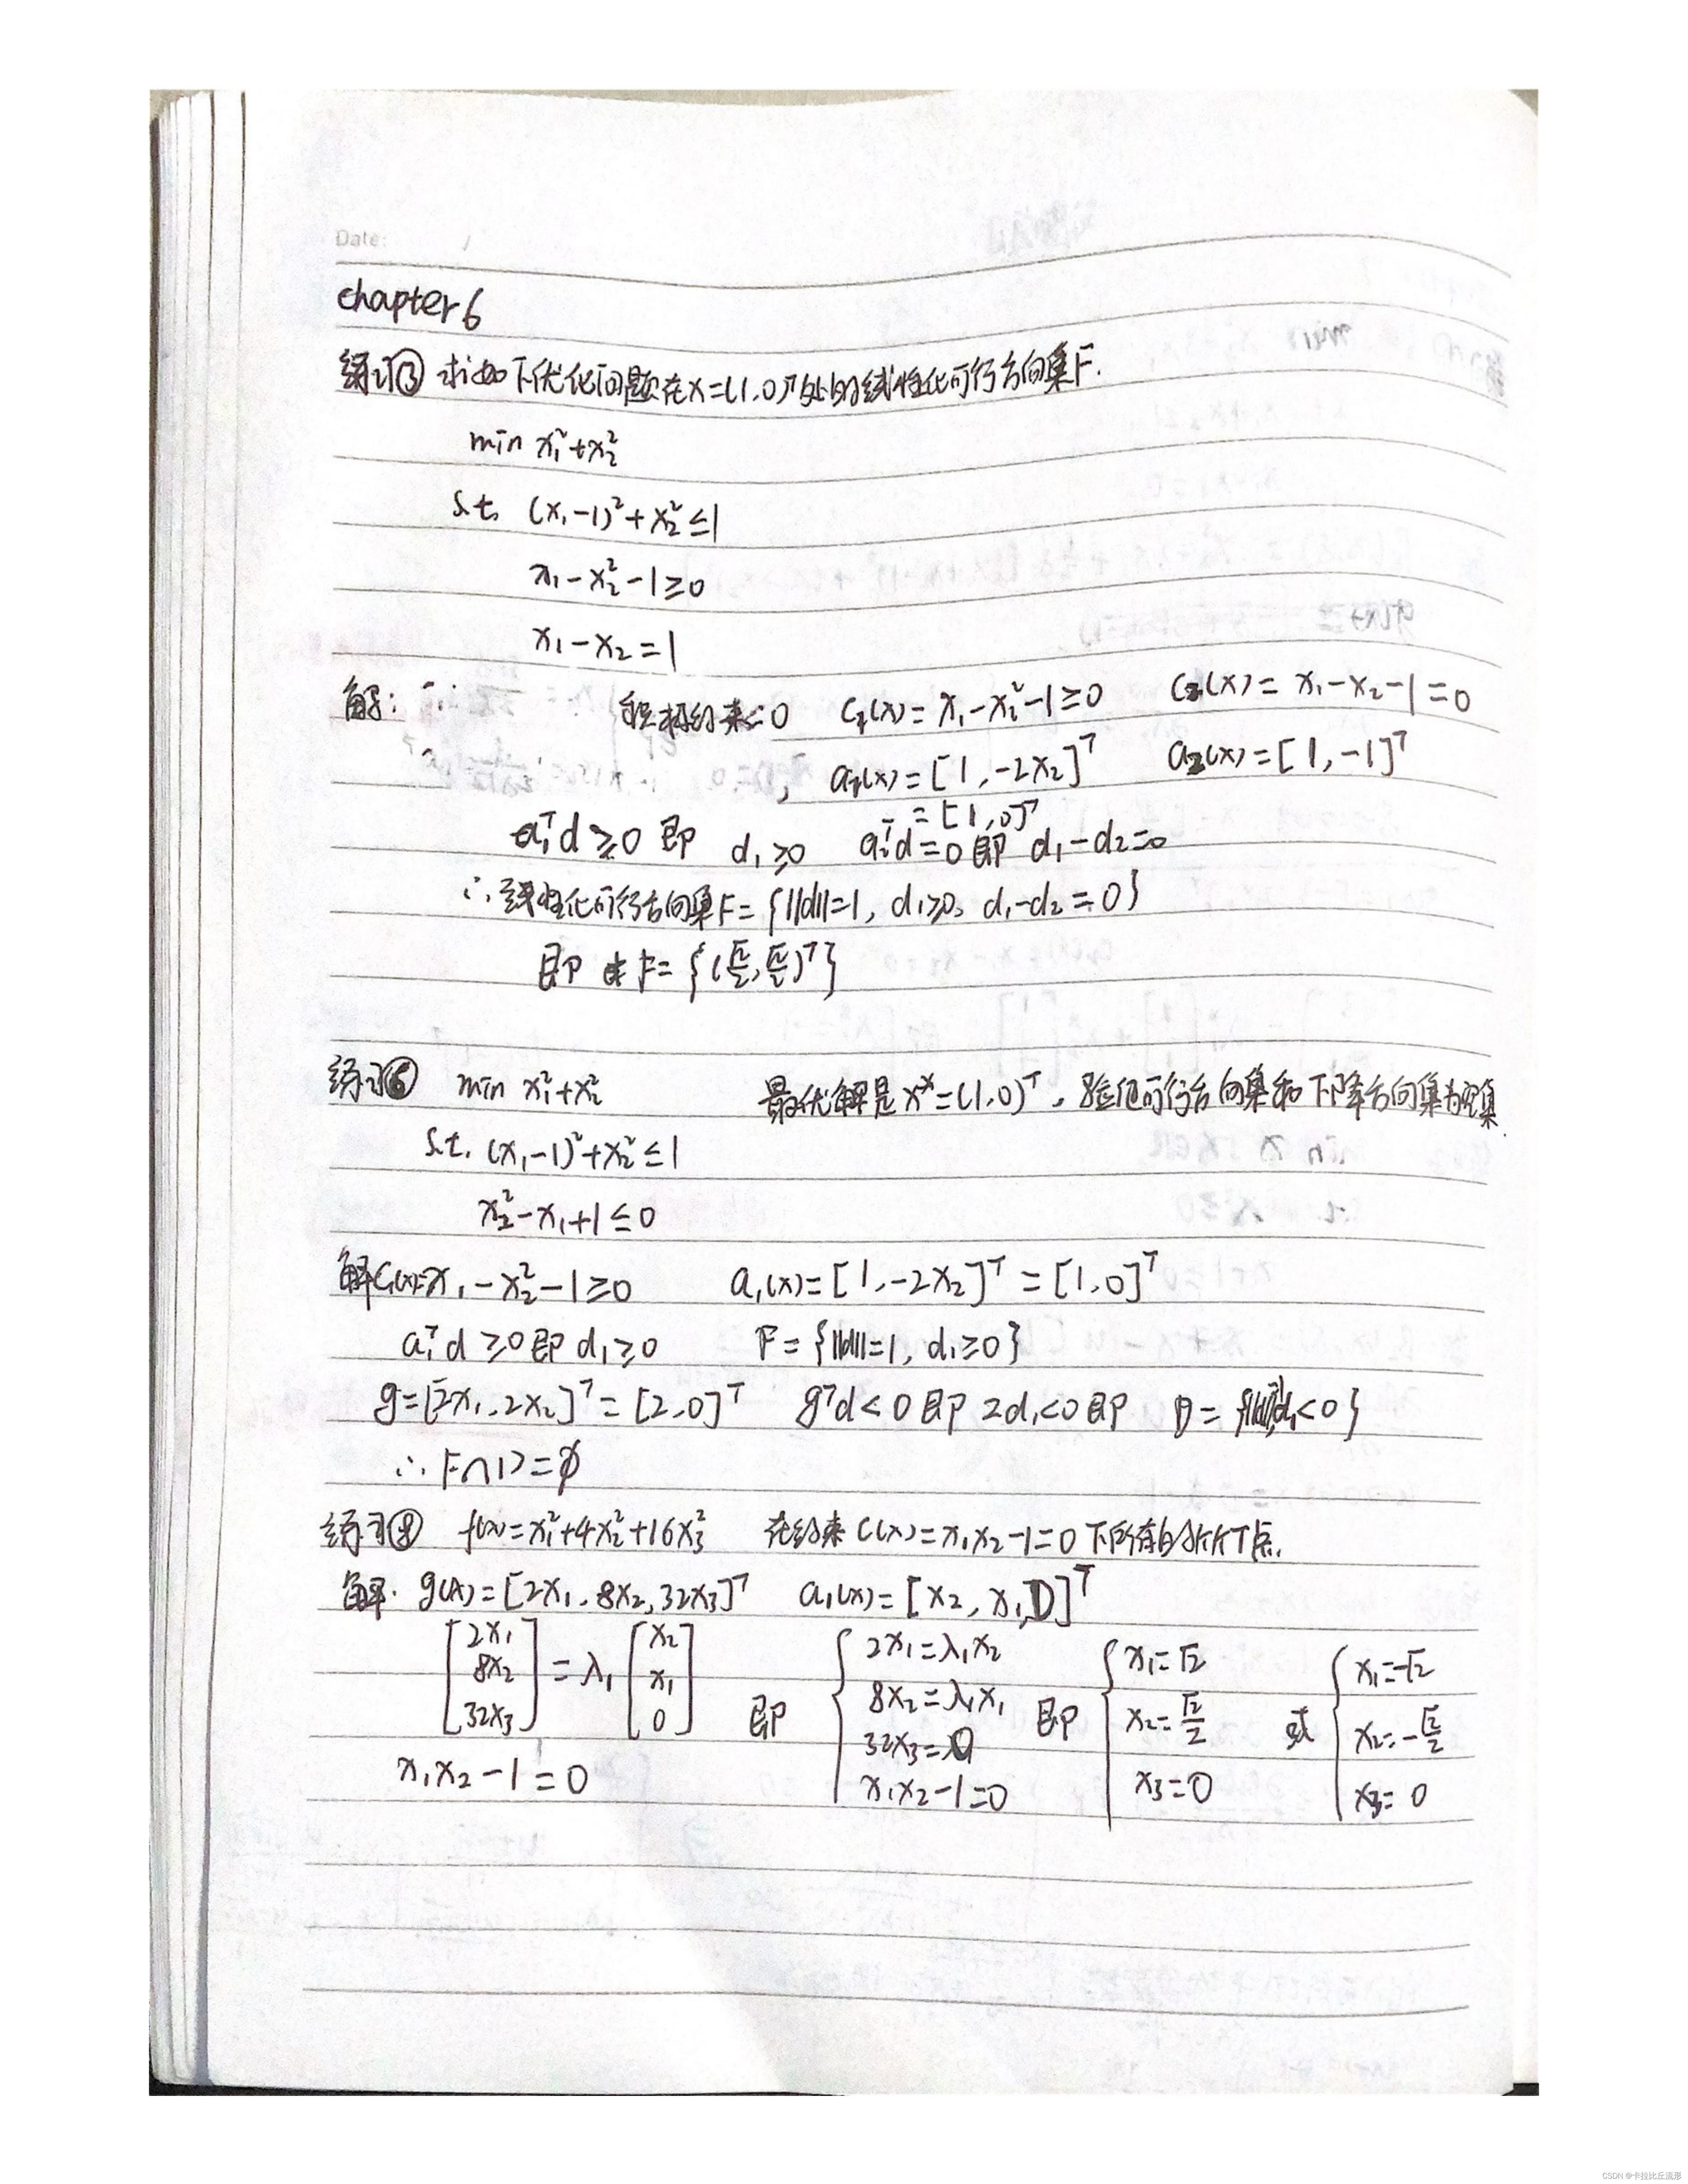 Date:
chapter6
练习③ 求如下优化问题在x=(1,0)ᵀ处的线性化可行方向集F.
min x₁²+x₂²
s.t. (x₁-1)²+x₂²≤1
x₁-x₂²-1≥0
x₁-x₂=1
解: ∵ 积极约束 c₁(x)=x₁-x₂²-1≥0 c₂(x)=x₁-x₂-1=0
, a₁(x)=[1,-2x₂]ᵀ a₂(x)=[1,-1]ᵀ
=[1,0]ᵀ
a₁ᵀd≥0 即 d₁≥0 a₂ᵀd=0 即 d₁-d₂=0
∴线性化可行方向集F={||d||=1, d₁≥0, d₁-d₂=0}
即 F={(√2/2,√2/2)ᵀ}
练习⑥ min x₁²+x₂² 最优解是x*=(1,0)ᵀ,验证可行方向集和下降方向集为空集.
s.t. (x₁-1)²+x₂²≤1
x₂²-x₁+1≤0
解 c₁(x)=x₁-x₂²-1≥0 a₁(x)=[1,-2x₂]ᵀ=[1,0]ᵀ
a₁ᵀd≥0即d₁≥0 F={||d||=1, d₁≥0}
g=[2x₁,2x₂]ᵀ=[2,0]ᵀ gᵀd<0即2d₁<0即 D={||d||=1,d₁<0}
∴F∩D=∅
练习⑧ f(x)=x₁²+4x₂²+16x₃² 在约束c(x)=x₁x₂-1=0下所有的KKT点.
解. g(x)=[2x₁,8x₂,32x₃]ᵀ a₁(x)=[x₂,x₁,0]ᵀ
[2x₁ 8x₂ 32x₃]=λ₁[x₂ x₁ 0] 即 {2x₁=λ₁x₂ 8x₂=λ₁x₁ 32x₃=0 x₁x₂-1=0 即 {x₁=√2 x₂=√2/2 x₃=0 或 {x₁=-√2 x₂=-√2/2 x₃=0
x₁x₂-1=0
CSDN @卡拉比丘流形